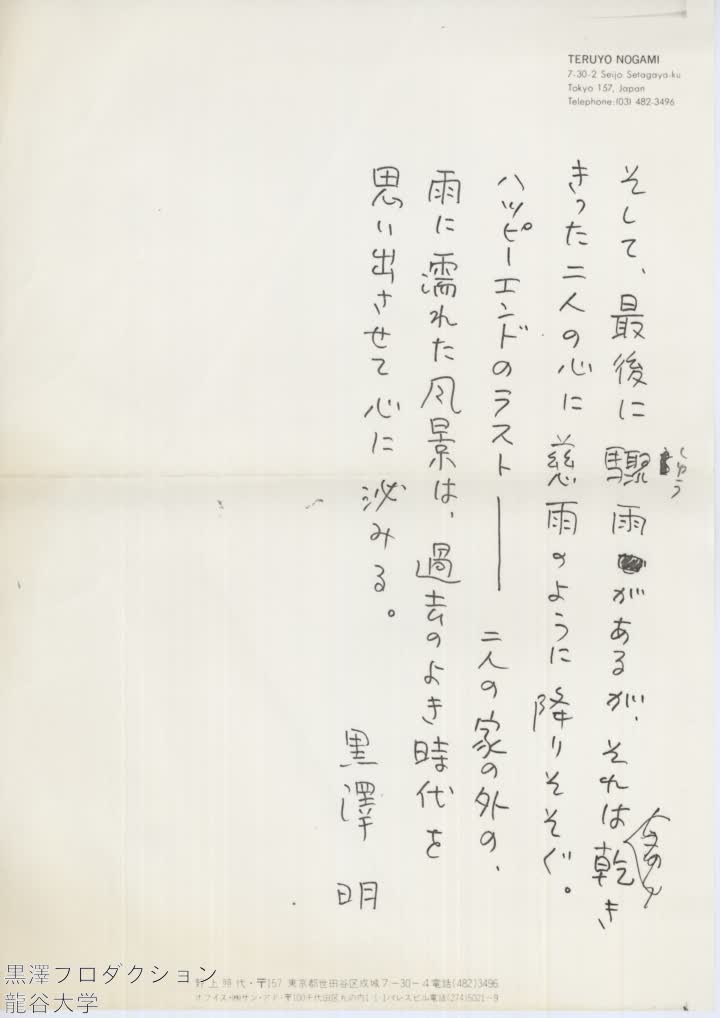 TERUYO NOGAMI
7-30-2 Seijo Setagaya-ku
Tokyo 157, Japan
Telephone:(03) 482-3496
しゅう
そして、最後に驟雨があるが、それは乾き
きった二人の心に慈雨のように降りそそぐ。
ハッピーエンドのラスト――二人の家の外の、
雨に濡れた風景は、過去のよき時代を
思い出させて心に泌みる。
黒澤 明
上時代・〒157 東京都世田谷区成城7-30-4電話(482)3496
オフィス・㈱サン・アド・〒100千代田区丸の内1-1-1パレスビル電話(274)5021-9
黒澤プロダクション
龍谷大学